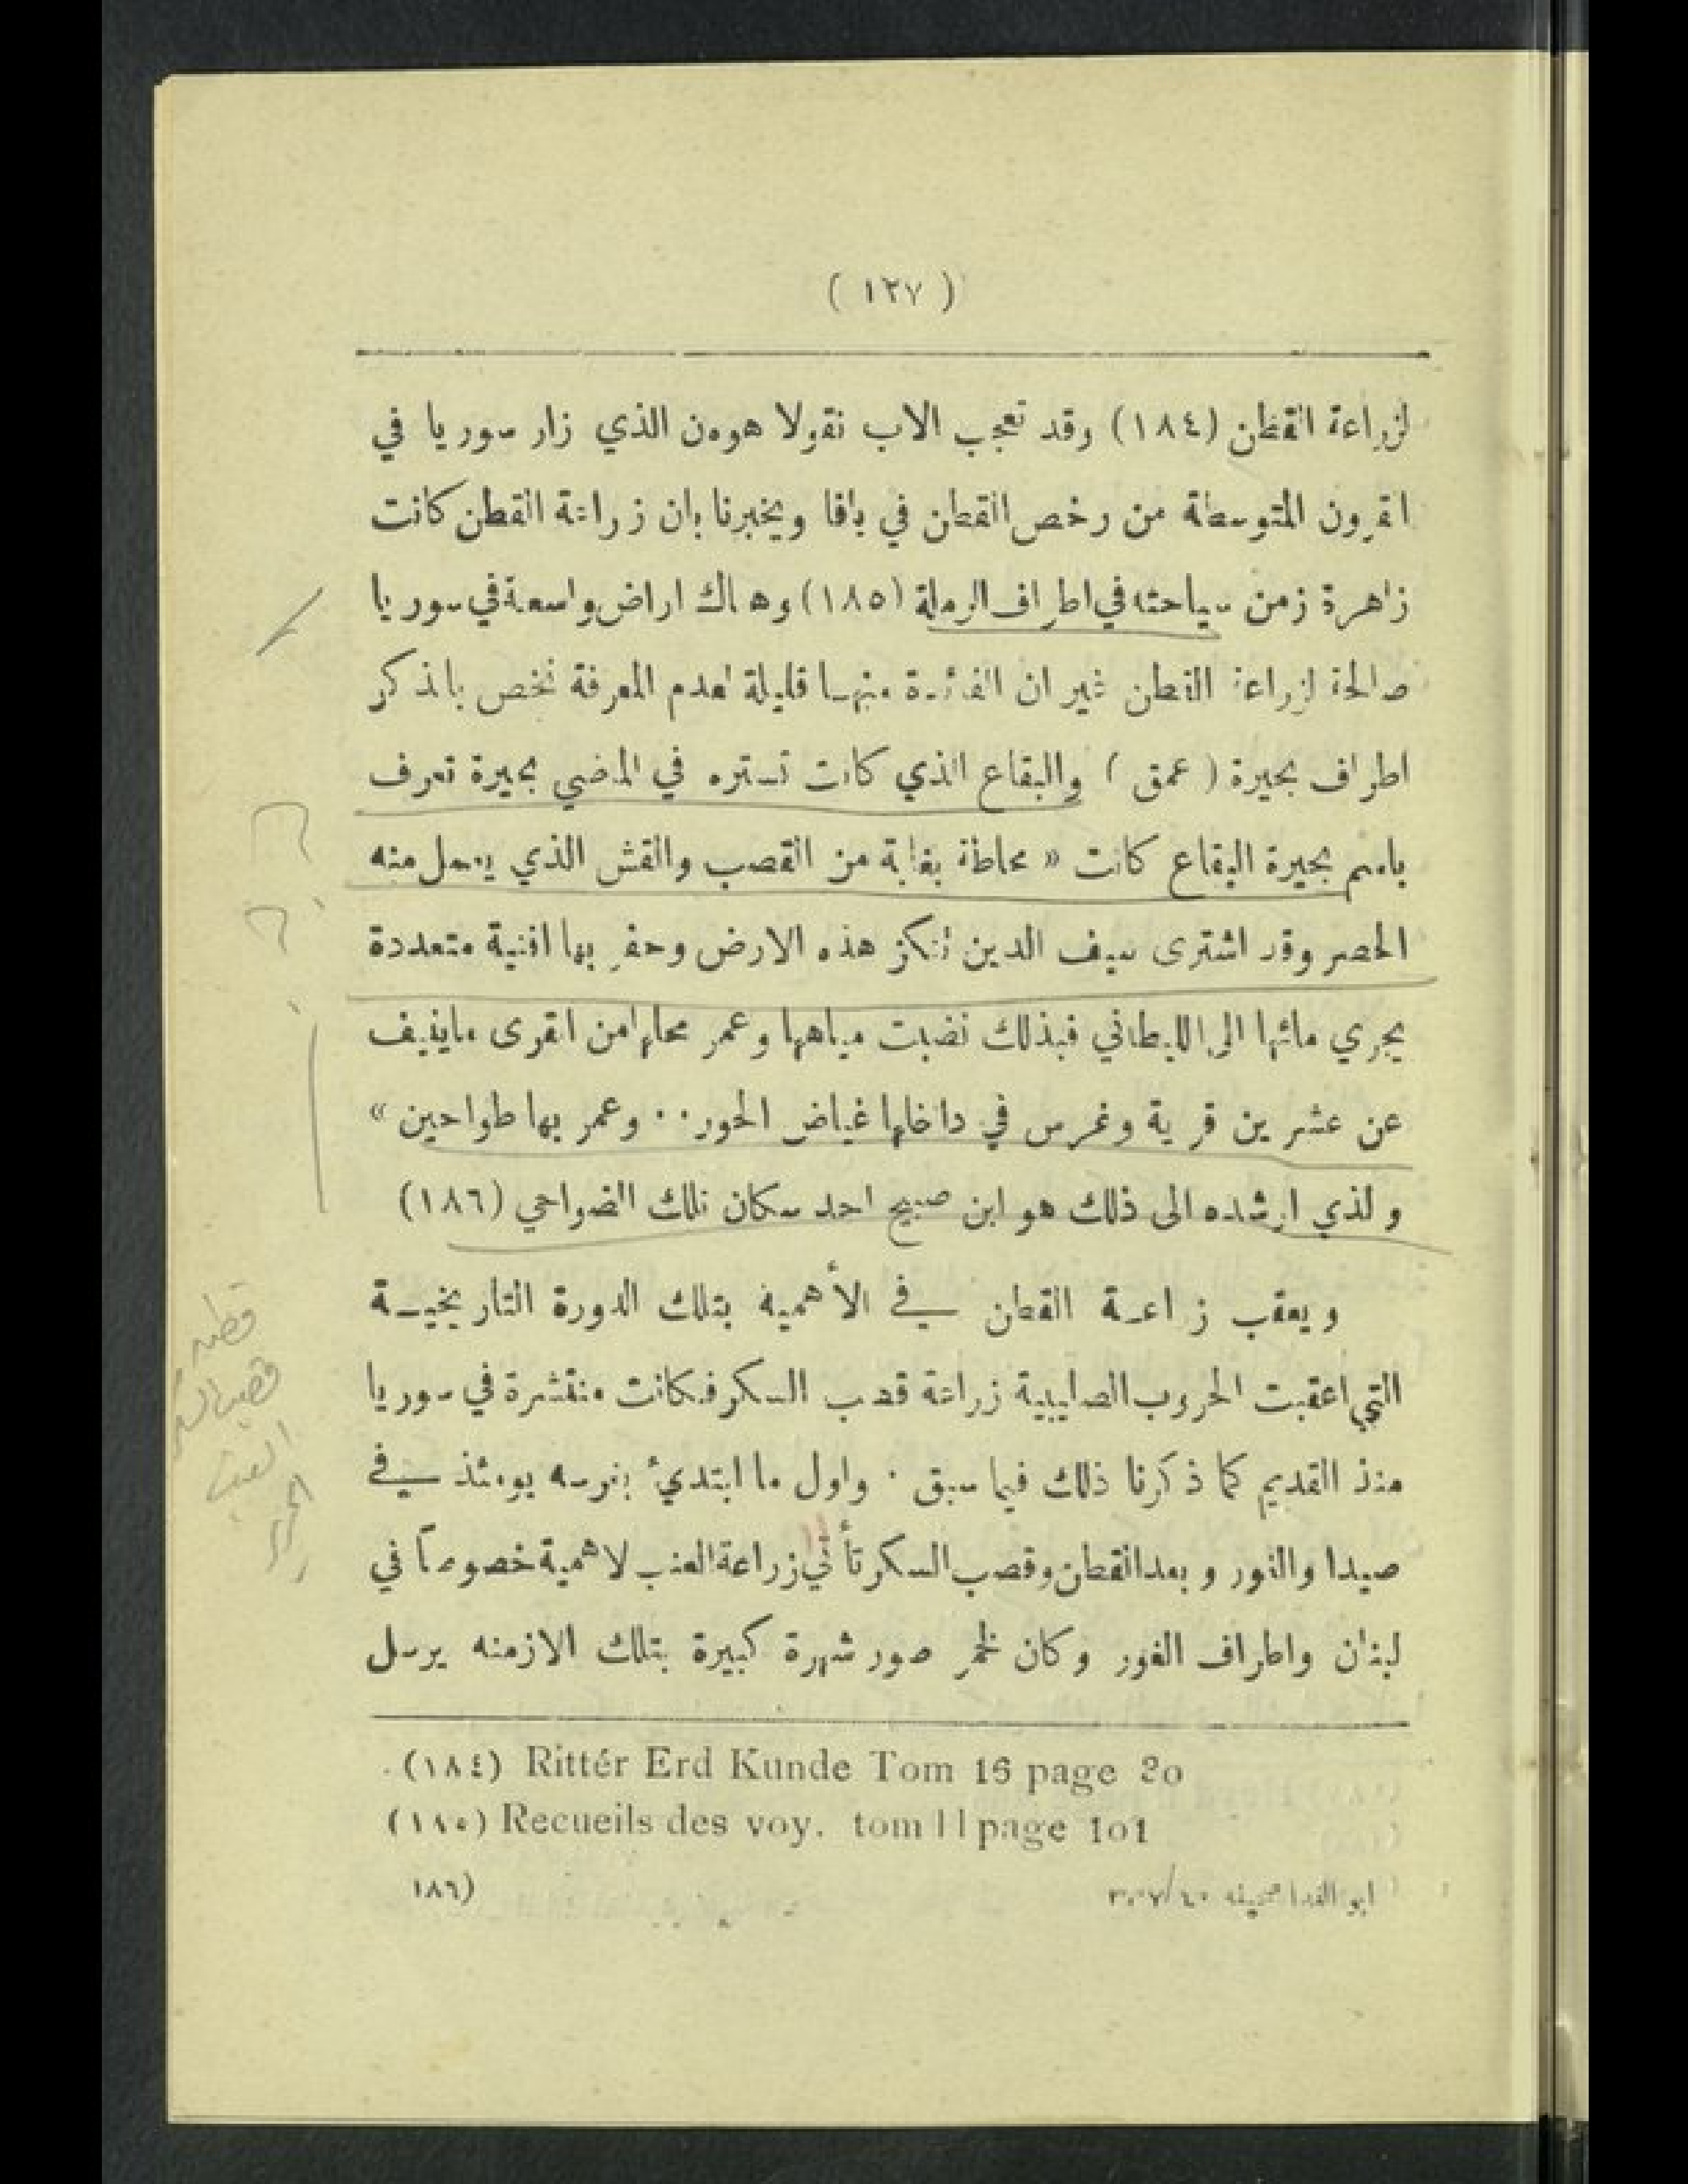 ( ١٢٧ )
لزراعة القطن (١٨٤) وقد تعجب الاب نقولا هومن الذي زار سوريا في
القرون المتوسطة من رخص القطن في يافا ويخبرنا بان زراعة القطن كانت
زاهرة زمن سياحته في اطراف الرملة (١٨٥) وهناك اراض واسعة في سوريا
صالحة لزراعة القطن غير ان الفائدة منها قليلة لعدم المعرفة نخص بالذكر
اطراف بحيرة ( عمق ) والبقاع الذي كانت تستره في الماضي بحيرة تعرف
باسم بحيرة البقاع كانت « محاطة بغابة من القصب والقش الذي يعمل منه
الحصر وقد اشترى سيف الدين تنكز هذه الارض وحفر بها اقنية متعددة
يجري مائها الى الليطاني فبذلك نضبت مياهها وعمر محلها من القرى ماينيف
عن عشرين قرية وغرس في داخلها غياض الحور ·· وعمر بها طواحين »
والذي ارشده الى ذلك هو ابن صبيح احد سكان تلك الضواحي (١٨٦)
ويعقب زراعة القطن في الأهمية بتلك الدورة التاريخية
التي اعقبت الحروب الصليبية زراعة قصب السكر فكانت منتشرة في سوريا
منذ القديم كما ذكرنا ذلك فيما سبق · واول ما ابتديء بغرسه يومئذ في
صيدا والغور وبعد القطن وقصب السكر تأتي زراعة العنب لاهمية خصوصاً في
لبنان واطراف الغور وكان لخمر صور شهرة كبيرة بتلك الازمنه يرسل
(١٨٤) Rittér Erd Kunde Tom 16 page 20
(١٨٥) Recueils des voy. tom 11 page 101
١٨٦) ابو الفدا صحيفه
قطن
قصب السكر
العنب